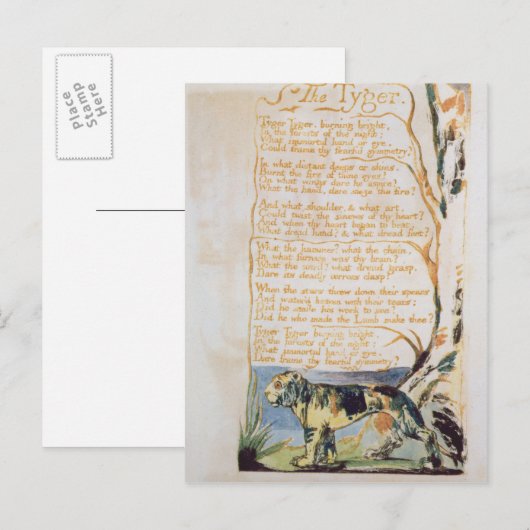 Place
Stamp
Here
The Tyger.
Tyger Tyger, burning bright,
In the forests of the night;
What immortal hand or eye,
Could frame thy fearful symmetry?
In what distant deeps or skies,
Burnt the fire of thine eyes?
On what wings dare he aspire?
What the hand, dare seize the fire?
And what shoulder, & what art,
Could twist the sinews of thy heart?
And when thy heart began to beat,
What dread hand? & what dread feet?
What the hammer? what the chain,
In what furnace was thy brain?
What the anvil? what dread grasp,
Dare its deadly terrors clasp?
When the stars threw down their spears
And water'd heaven with their tears:
Did he smile his work to see?
Did he who made the Lamb make thee?
Tyger Tyger burning bright,
In the forests of the night:
What immortal hand or eye,
Dare frame thy fearful symmetry?